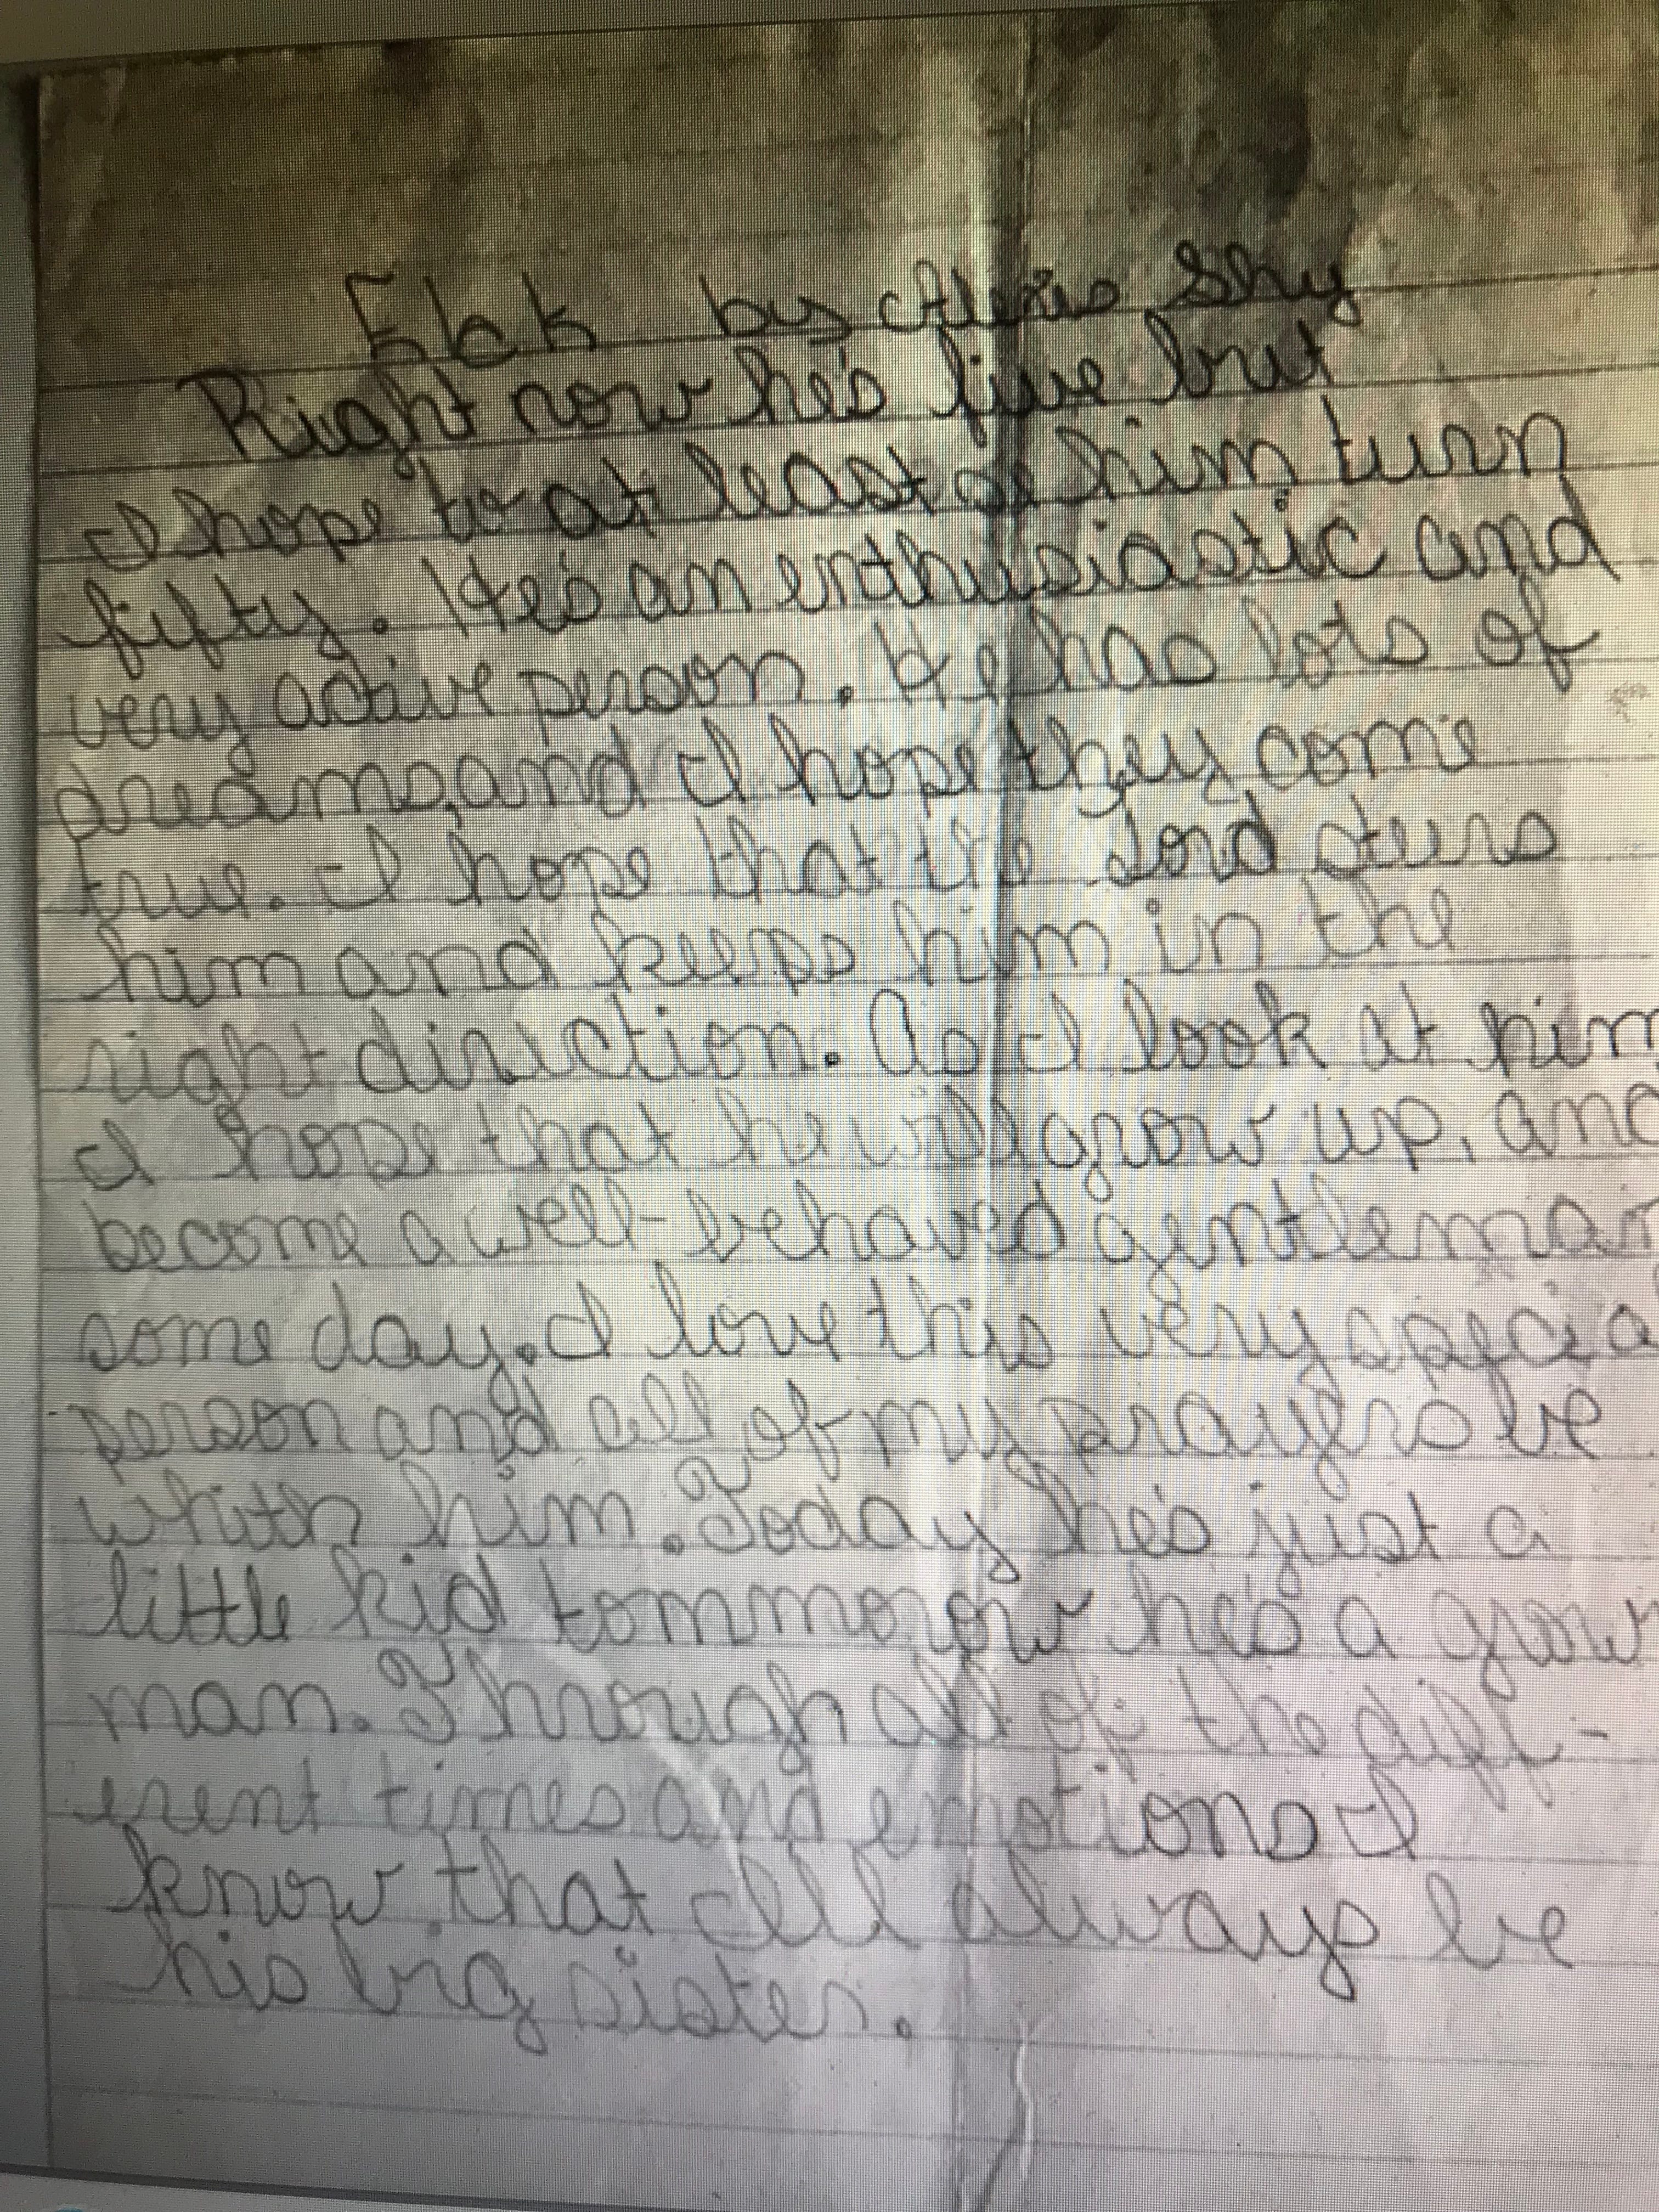 by Alexis Shy
Right now he's five but
I hope to at least him turn
fifty. He's an enthusiastic and
very active person. He has lots of
dreams, and I hope they come
true. I hope that the Lord sturs
him and keeps him in the
right diriction. As I look at him
I hope that he will grow up, and
become a well-behaved gentleman
some day. I love this very specia
person and all of my prayers be
whith him. Today he's just a
little kid tommorow he's a grow
man. Through all of the diff-
erent times and emotions I
know that I'll always be
his big sister.